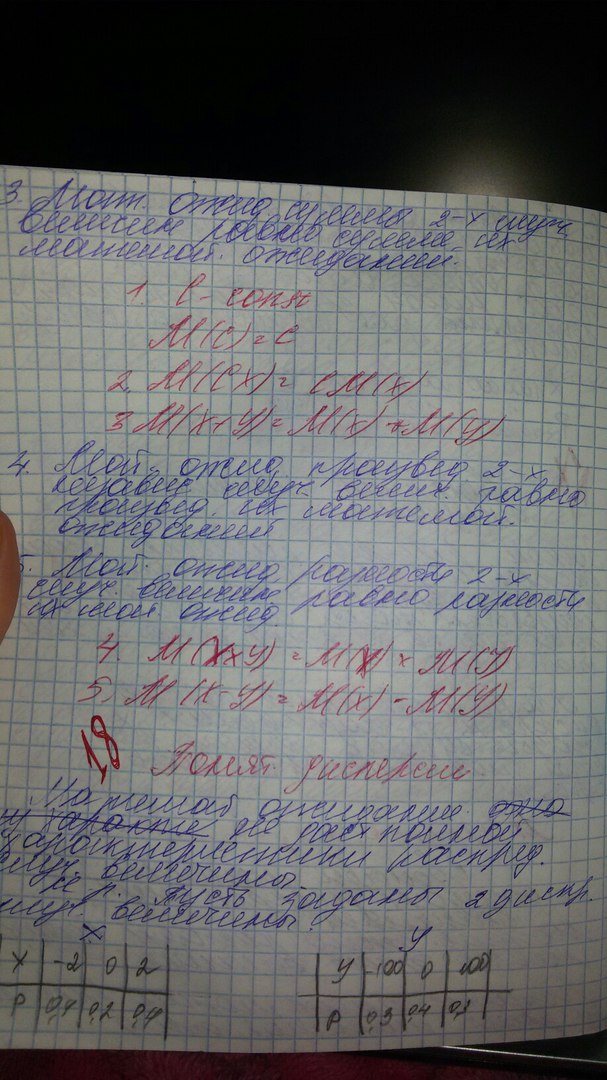 3. Мат. ожид суммы 2-х случ
величин равно сумме их
математ. ожиданий.
1. C - const
M(C) = C
2. M(CX) = CM(X)
3 M(X+Y) = M(X) + M(Y)
4. Мат. ожид. произвед. 2-х
независ случ. велич. равно
произвед. их математ.
ожиданий
5. Мат. ожид разности 2-х
случ. величин равно разности
их мат ожид
4. M(X×Y) = M(X) × M(Y)
5. M(X-Y) = M(X) - M(Y)
18 Понят. дисперсии
Математ ожидание
не даст полной
характеристики распред.
случ величины
Н. р. пусть заданы 2 дискр.
случ. величины.
X Y
X -2 0 2
P 0,4 0,2 0,4
Y -100 0 100
P 0,3 0,4 0,3